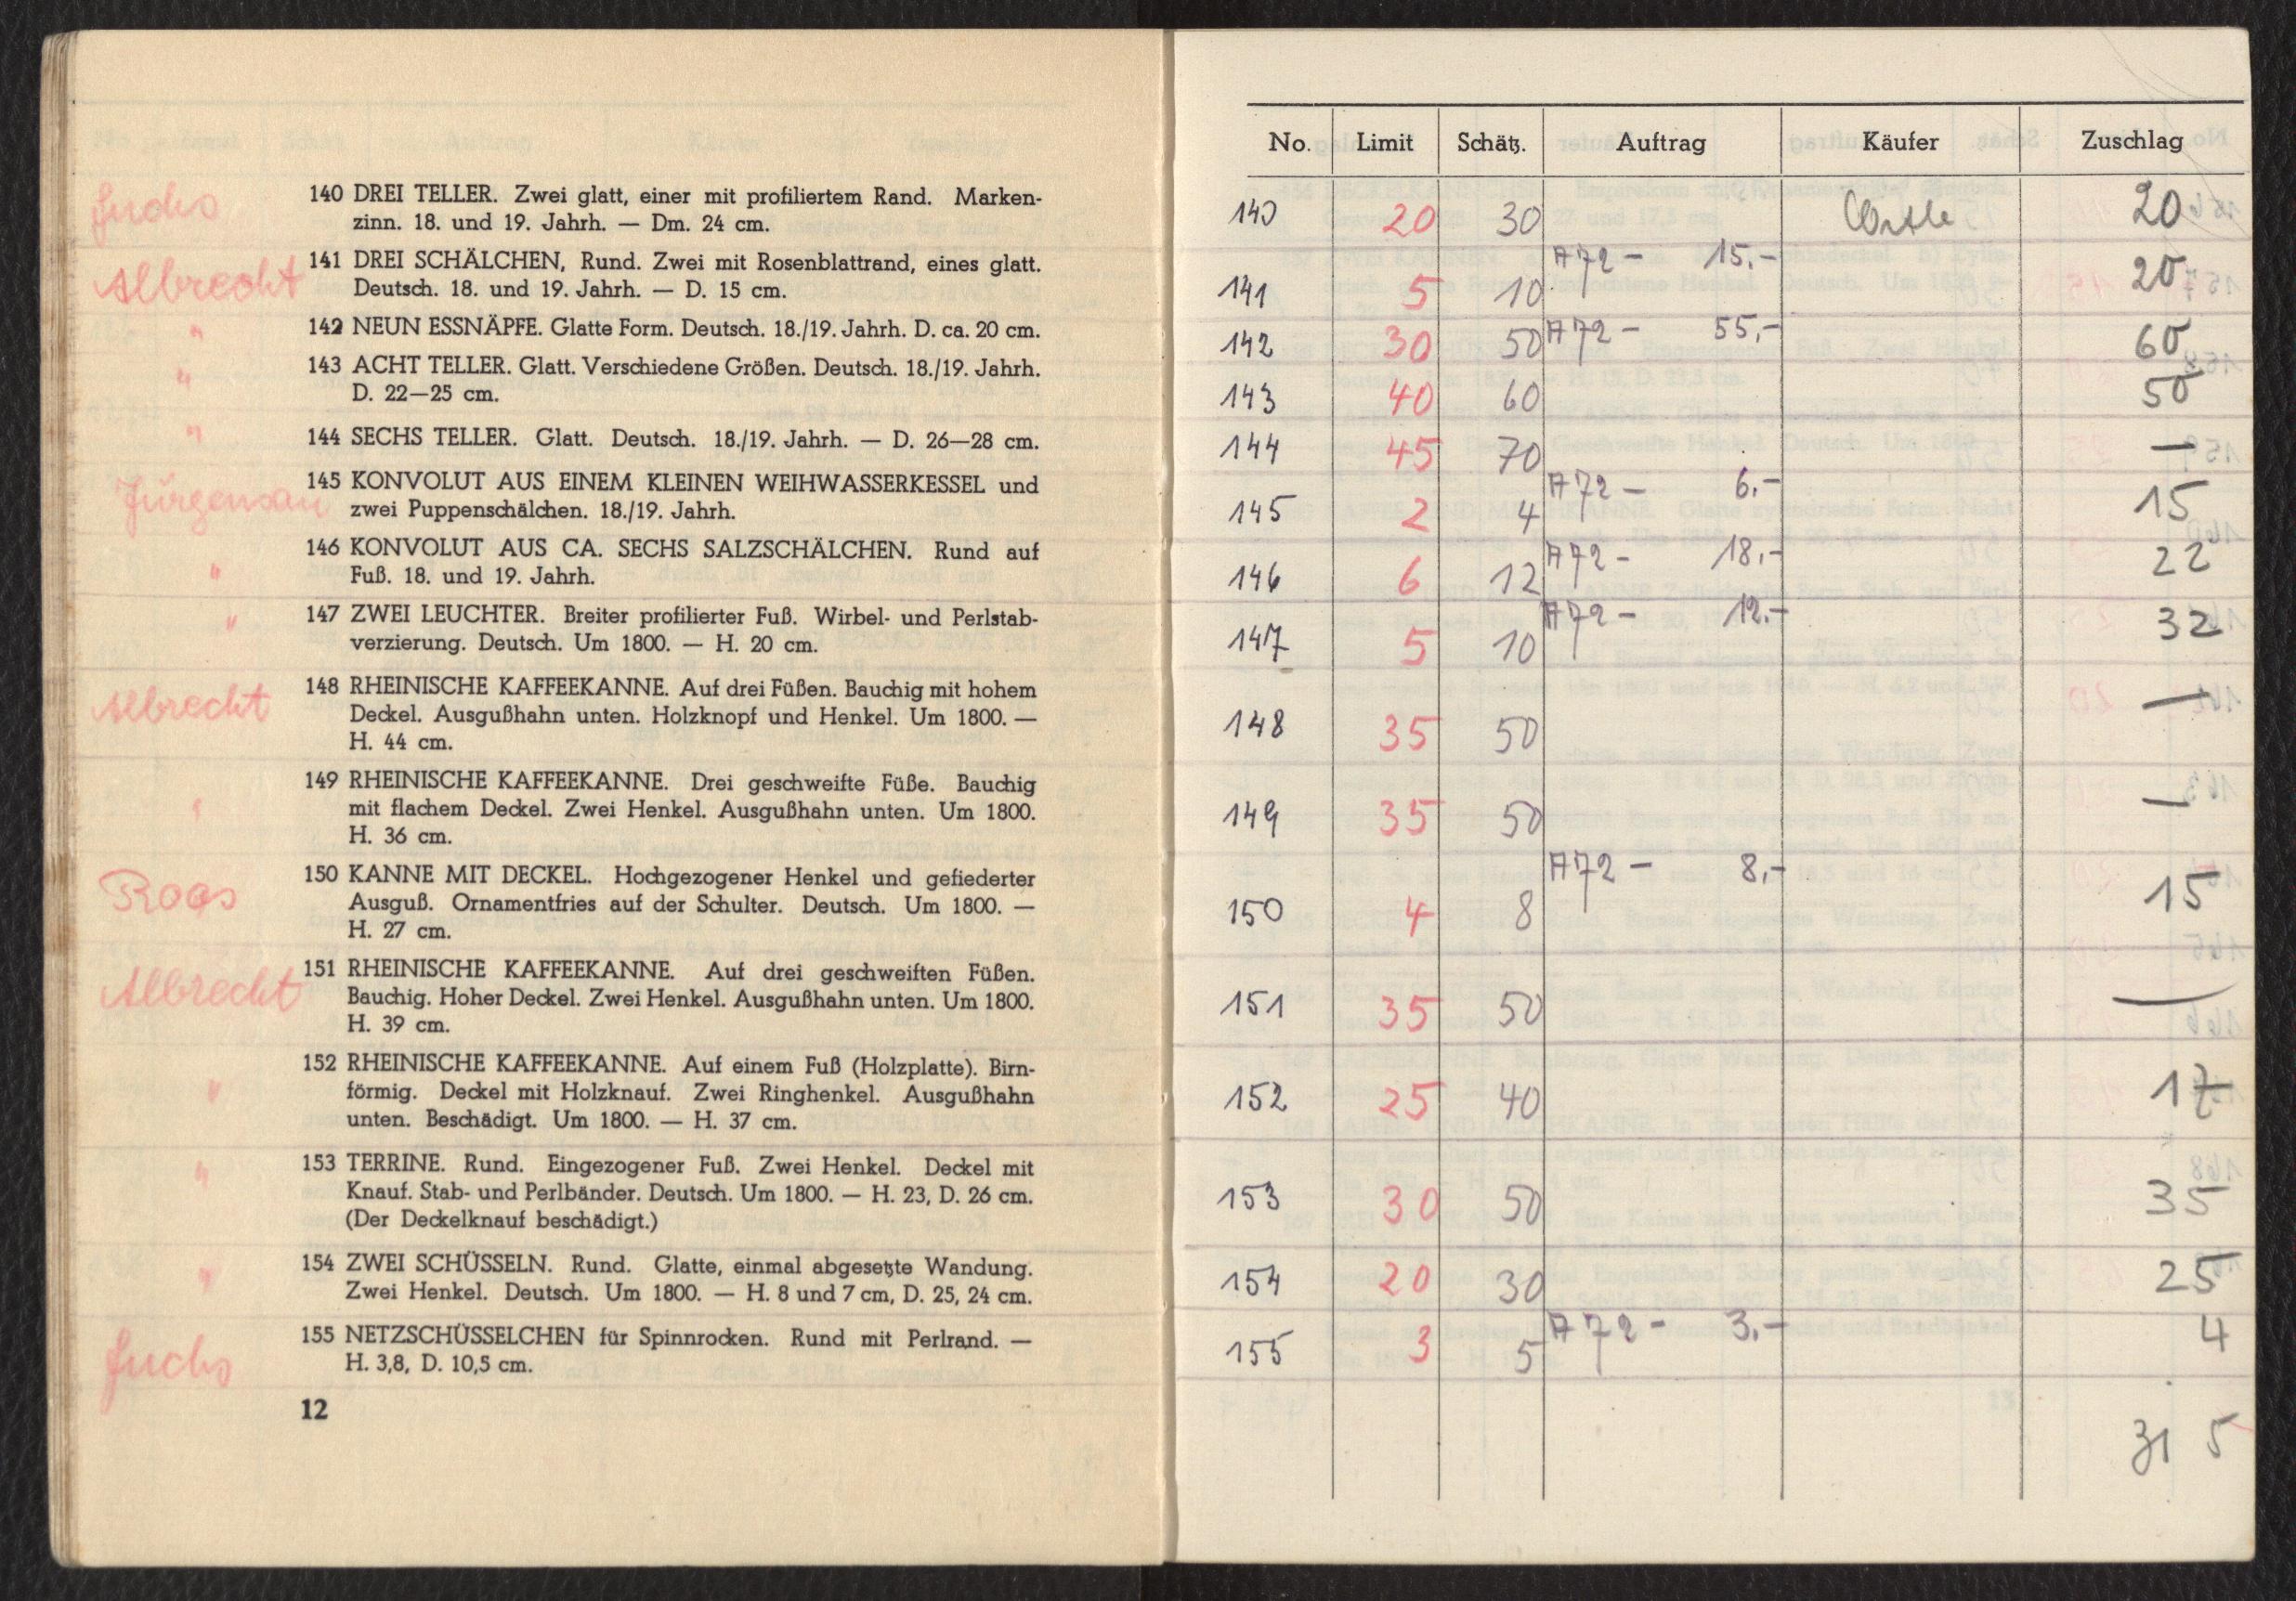 Fuchs
140 DREI TELLER. Zwei glatt, einer mit profiliertem Rand. Marken-
zinn. 18. und 19. Jahrh. — Dm. 24 cm.
Albrecht
141 DREI SCHÄLCHEN, Rund. Zwei mit Rosenblattrand, eines glatt.
Deutsch. 18. und 19. Jahrh. — D. 15 cm.
" 142 NEUN ESSNÄPFE. Glatte Form. Deutsch. 18./19. Jahrh. D. ca. 20 cm.
" 143 ACHT TELLER. Glatt. Verschiedene Größen. Deutsch. 18./19. Jahrh.
D. 22—25 cm.
" 144 SECHS TELLER. Glatt. Deutsch. 18./19. Jahrh. — D. 26—28 cm.
Jürgensen
145 KONVOLUT AUS EINEM KLEINEN WEIHWASSERKESSEL und
zwei Puppenschälchen. 18./19. Jahrh.
" 146 KONVOLUT AUS CA. SECHS SALZSCHÄLCHEN. Rund auf
Fuß. 18. und 19. Jahrh.
" 147 ZWEI LEUCHTER. Breiter profilierter Fuß. Wirbel- und Perlstab-
verzierung. Deutsch. Um 1800. — H. 20 cm.
Albrecht
148 RHEINISCHE KAFFEEKANNE. Auf drei Füßen. Bauchig mit hohem
Deckel. Ausgußhahn unten. Holzknopf und Henkel. Um 1800. —
H. 44 cm.
" 149 RHEINISCHE KAFFEEKANNE. Drei geschweifte Füße. Bauchig
mit flachem Deckel. Zwei Henkel. Ausgußhahn unten. Um 1800.
H. 36 cm.
Roos
150 KANNE MIT DECKEL. Hochgezogener Henkel und gefiederter
Ausguß. Ornamentfries auf der Schulter. Deutsch. Um 1800. —
H. 27 cm.
Albrecht
151 RHEINISCHE KAFFEEKANNE. Auf drei geschweiften Füßen.
Bauchig. Hoher Deckel. Zwei Henkel. Ausgußhahn unten. Um 1800.
H. 39 cm.
" 152 RHEINISCHE KAFFEEKANNE. Auf einem Fuß (Holzplatte). Birn-
förmig. Deckel mit Holzknauf. Zwei Ringhenkel. Ausgußhahn
unten. Beschädigt. Um 1800. — H. 37 cm.
" 153 TERRINE. Rund. Eingezogener Fuß. Zwei Henkel. Deckel mit
Knauf. Stab- und Perlbänder. Deutsch. Um 1800. — H. 23, D. 26 cm.
(Der Deckelknauf beschädigt.)
" 154 ZWEI SCHÜSSELN. Rund. Glatte, einmal abgesetzte Wandung.
Zwei Henkel. Deutsch. Um 1800. — H. 8 und 7 cm, D. 25, 24 cm.
Fuchs
155 NETZSCHÜSSELCHEN für Spinnrocken. Rund mit Perlrand. —
H. 3,8, D. 10,5 cm.
12
No. Limit Schätz. Auftrag Käufer Zuschlag
140 20 30 20
141 5 10 A72 - 15.- 20
142 30 50 A72 - 55,- 60
143 40 60 50
144 45 70 —
145 2 4 A72 - 6.- 15
146 6 12 A72 - 18,- 22
147 5 10 A72 - 12.- 32
148 35 50 —
149 35 50 —
150 4 8 A72 - 8,- 15
151 35 50 —
152 25 40 17
153 30 50 35
154 20 30 25
155 3 5 A72 - 3.- 4
31 5